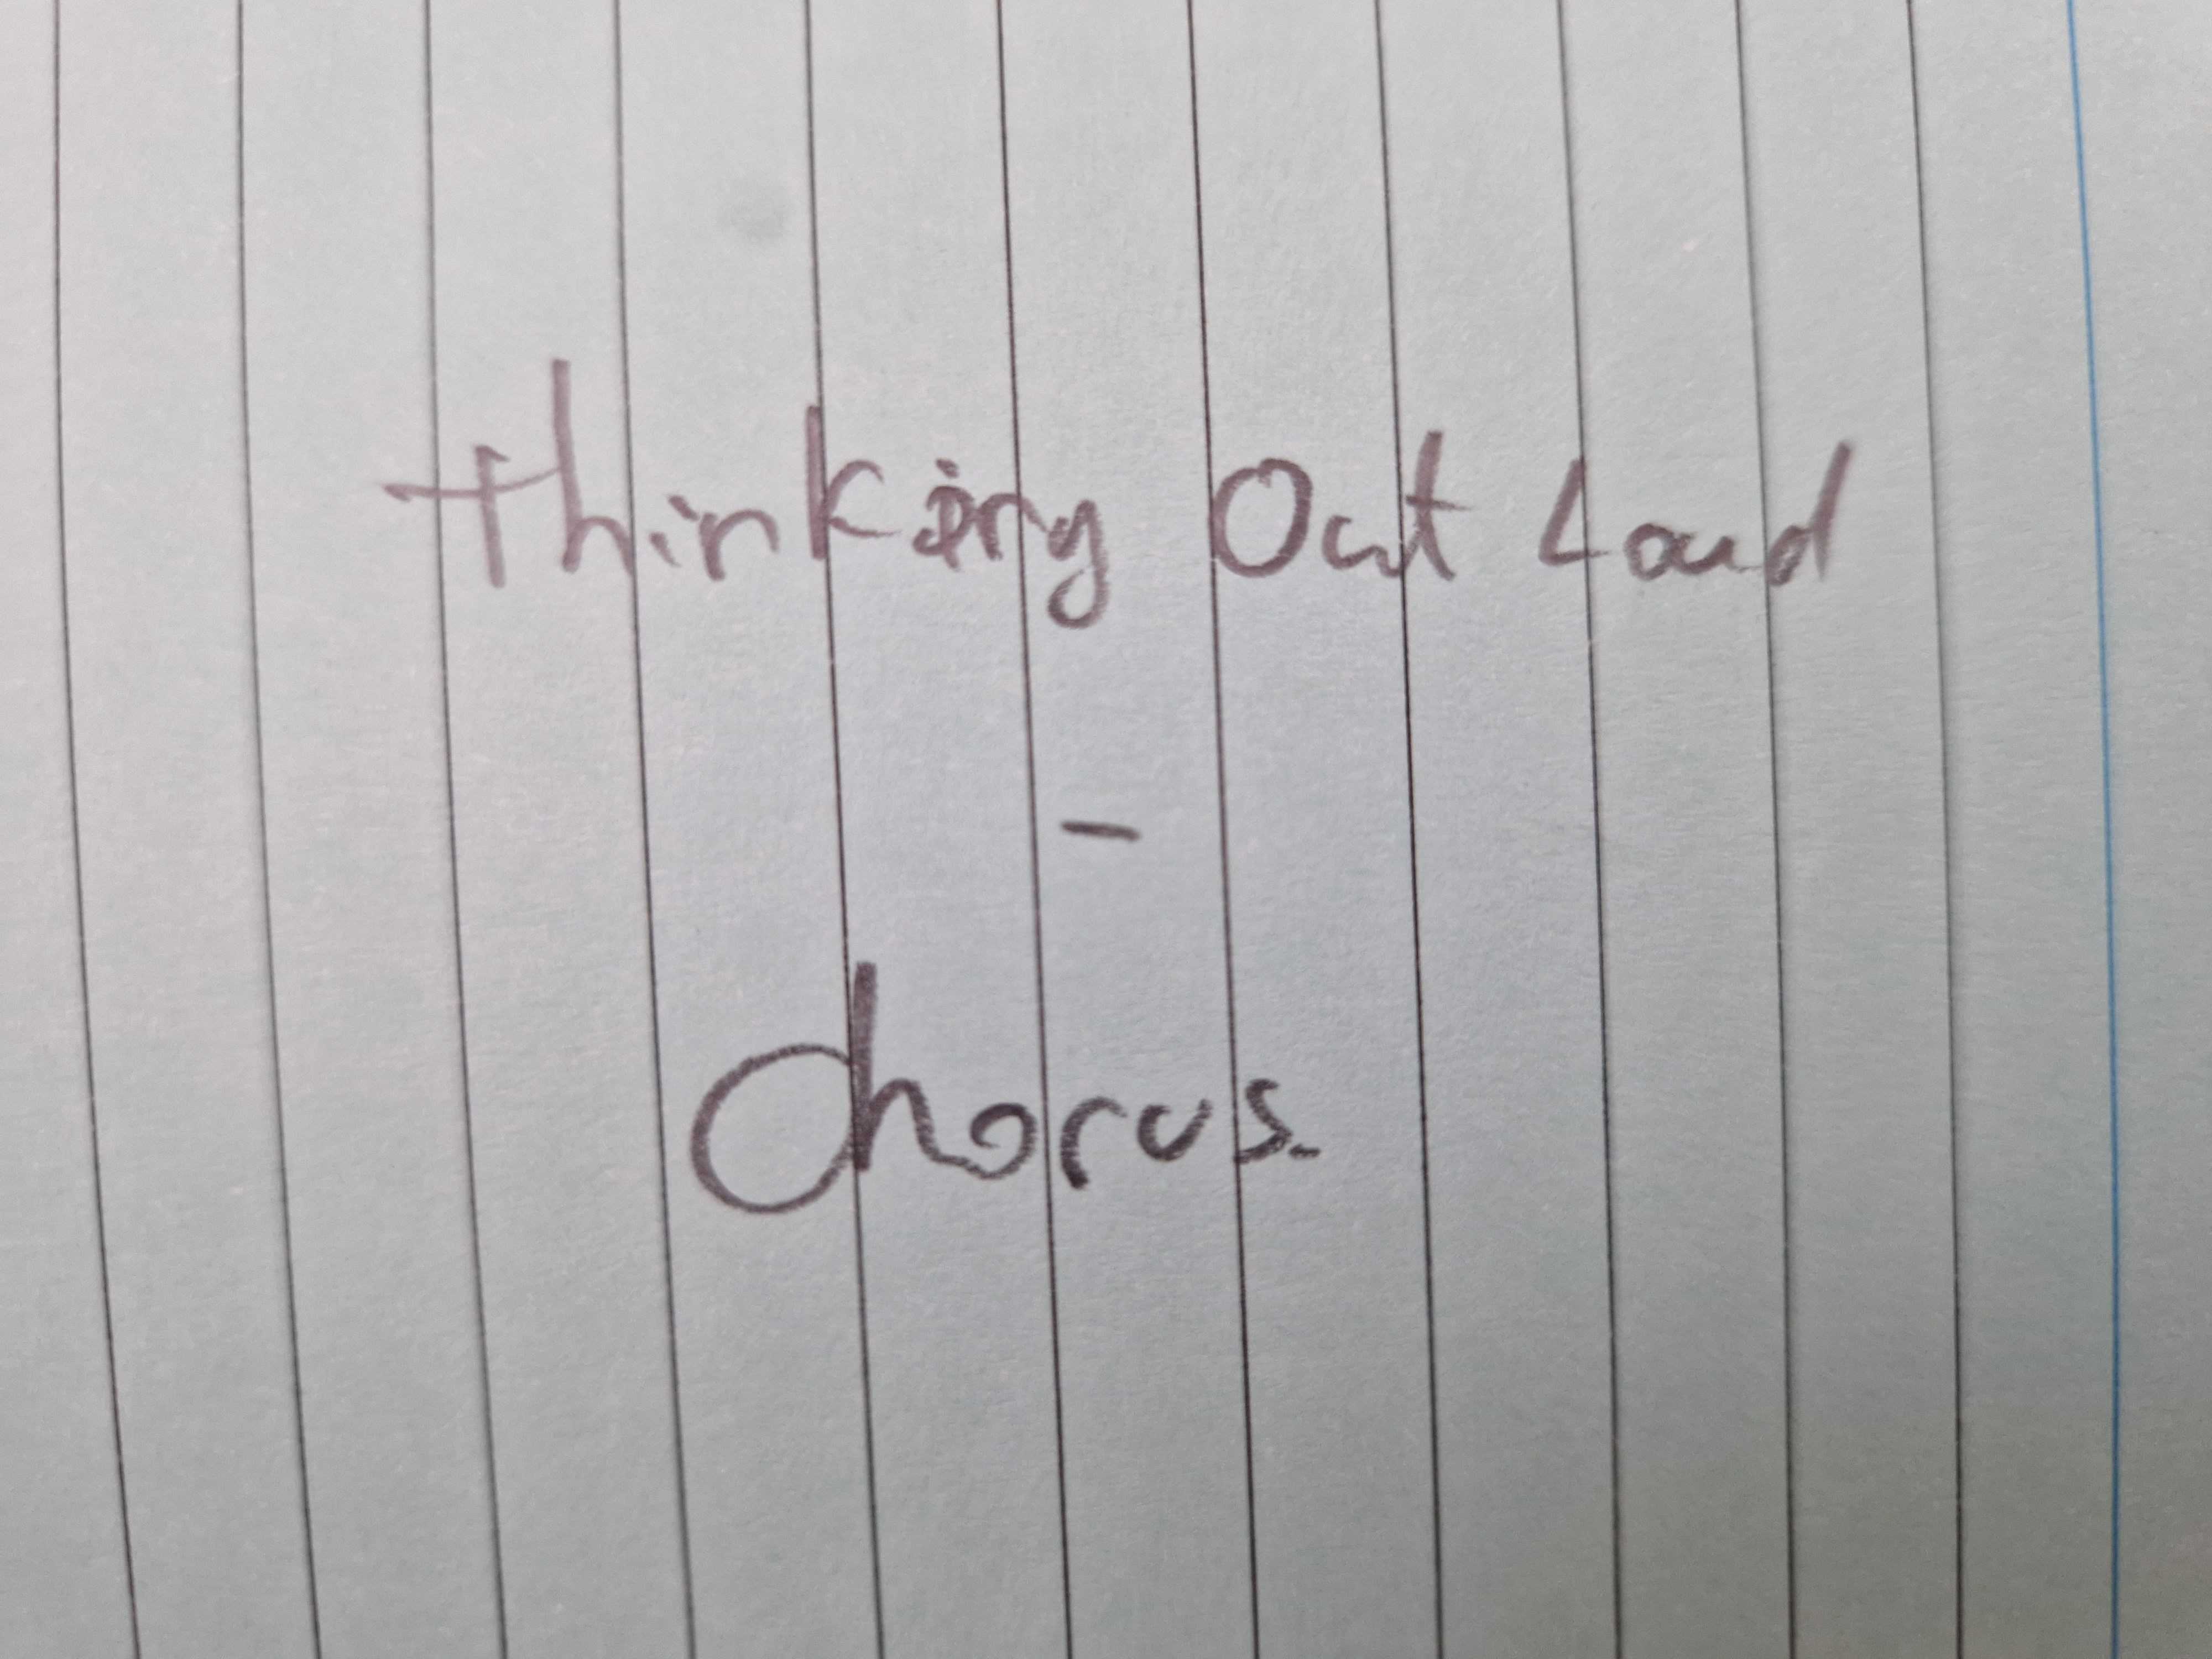 Thinking Out Loud
-
Chorus.